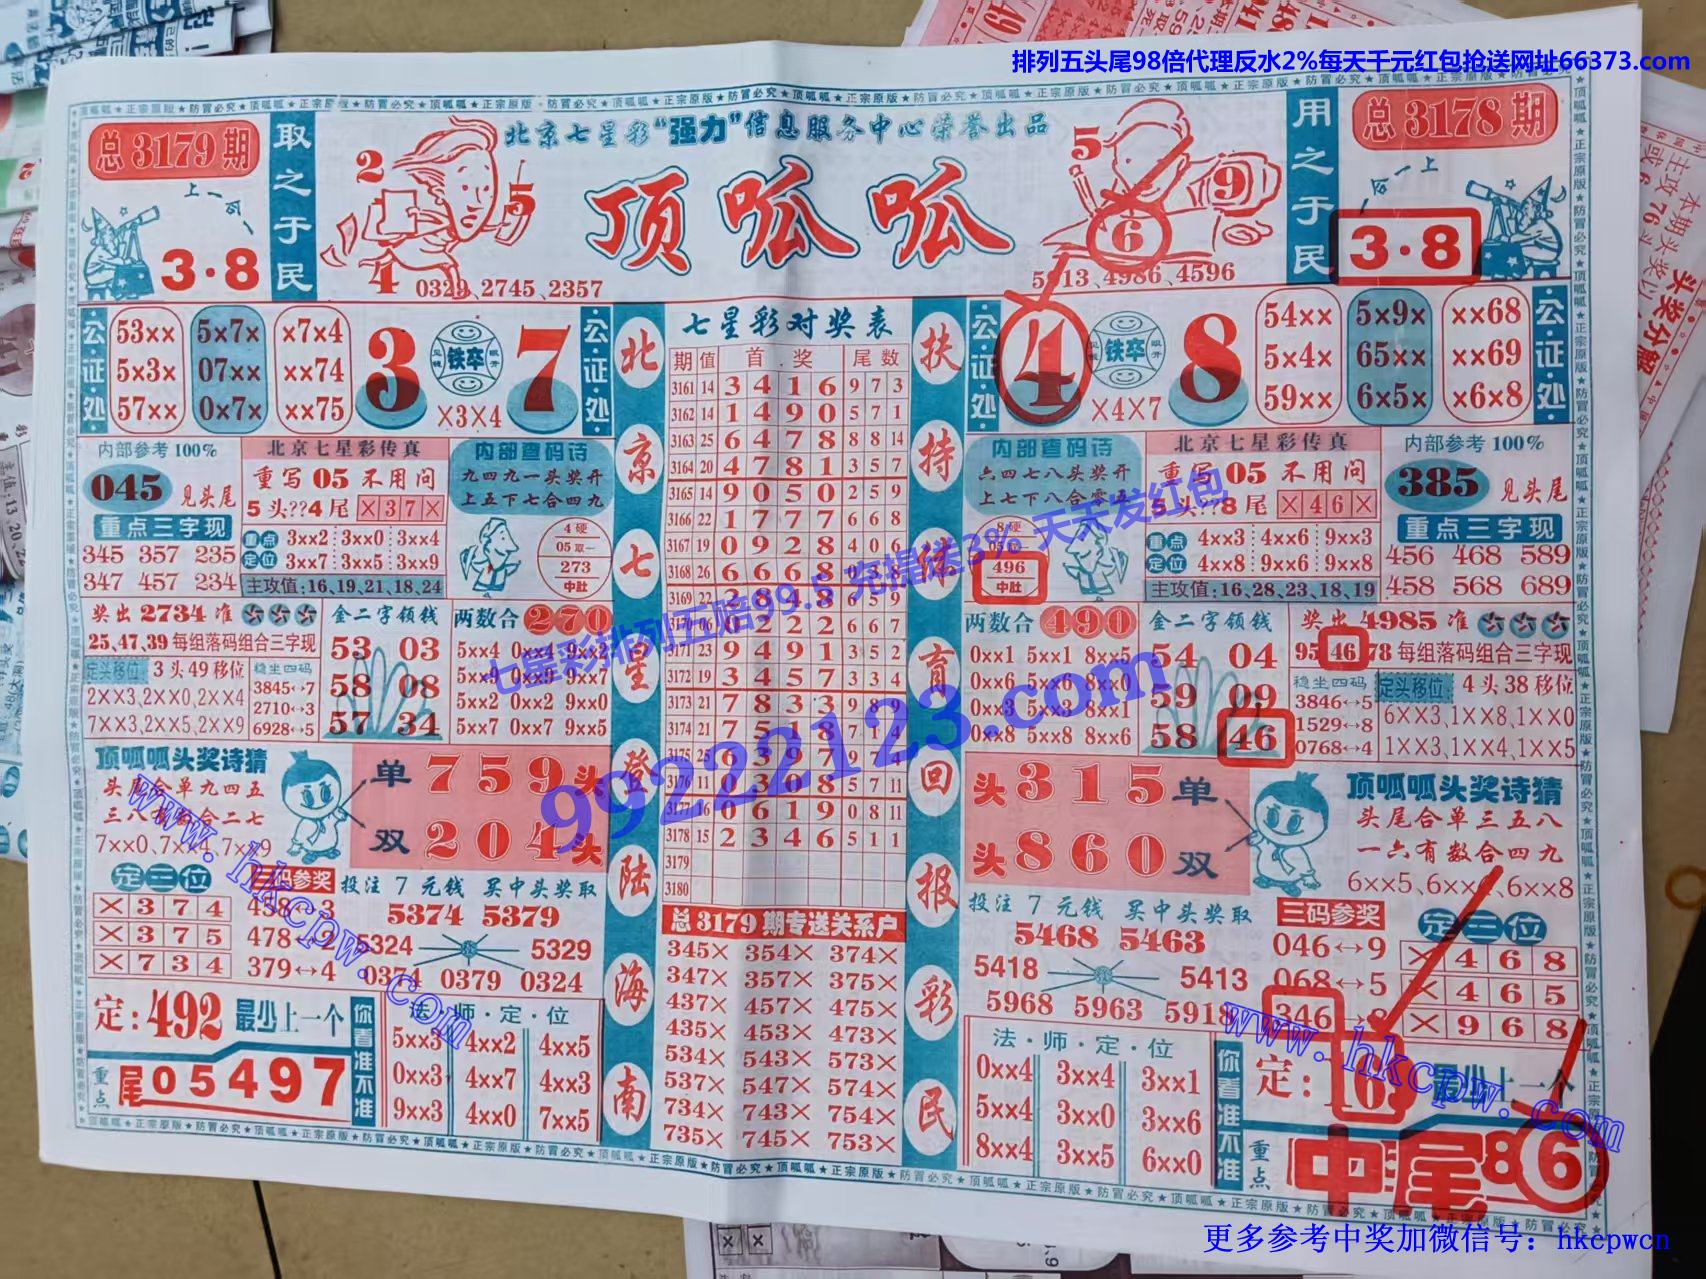 排列五头尾98倍代理反水2%每天千元红包抢送网址66373.com
北京七星彩“强力”信息服务中心荣誉出品
顶呱呱
总3179期
取之于民
上一公一
3·8
2
5
4
0329、2745、2357
用之于民
总3178期
上一公一
3·8
5
9
6
5913、4986、4596
公·证·处
53xx 5x7x x7x4
5x3x 07xx xx74
57xx 0x7x xx75
3 铁卒 7
×3×4
公·证·处
七星彩对奖表
期 值 首.奖 尾数
3161 14 3 4 1 6 9 7 3
3162 14 1 4 9 0 5 7 1
3163 25 6 4 7 8 8 8 14
3164 20 4 7 8 1 3 5 7
3165 14 9 0 5 0 2 5 9
3166 22 1 7 7 7 6 6 8
3167 19 0 9 2 8 4 0
3168 26 6 6 6 8
3169 22 2 8 4 8 6 5 9
3170 06 0 2 2 2 6 6 7
3171 23 9 4 9 1 3 5 2
3172 19 3 4 5 7
3173 21 7 8 3 3 9 8
3174 21 7 5 1 8 7 1 4
3175 25 6 3 9 7
3176 11 0 3 0 8 5 7 11
3177 16 0 6 1 9 0 8 11
3178 15 2 3 4 6 5 1 1
3179
3180
北京七星登陆海南
扶持体育回报彩民
公·证·处
4 铁卒 8
×4×7
54xx 5x9x xx68
5x4x 65xx xx69
59xx 6x5x x6x8
公·证·处
内部参考100%
045 见头尾
重点三字现
345 357 235
347 457 234
北京七星彩传真
重写05不用问
5头??4尾 ×37×
重点定位
3xx2 3xx0 3xx4
3xx7 3xx5 3xx9
主攻值:16,19,21,18,24
内部查码诗
九四九一头奖开
上五下七合四九
4硬
05取一
273
中肚
内部查码诗
六四七八头奖开
上七下八合零五
8硬
496
中肚
北京七星彩传真
重写05不用问
5头??8尾 ×46×
重点定位
4xx3 4xx6 9xx3
4xx8 9xx6 9xx8
主攻值:16,28,23,18,19
内部参考100%
385 见头尾
重点三字现
456 468 589
458 568 689
七星彩排列五赔99.5 充提送3% 天天发红包
99222123.com
奖出2734准
25,47,39每组落码组合三字现
定头移位: 3头49移位
2××3,2××0,2××4
7××3,2××5,2××9
稳坐四码
3845↔7
2710↔3
6928↔5
金二字领钱
53 03
58 08
57 34
两数合 270
5xx4 0xx4 9xx2
5xx9 0xx9 9xx7
5xx2 0xx2 9xx0
5xx7 0xx7 9xx5
两数合 490
0xx1 5xx1 8xx5
0xx6 5xx6 8xx0
0xx3 5xx3 8xx1
0xx8 5xx8 8xx6
金二字领钱
54 04
59 09
58 46
奖出4985准
95,46,78每组落码组合三字现
稳坐四码
3846↔5
1529↔8
0768↔4
定头移位: 4头38移位
6××3,1××8,1××0
1××3,1××4,1××5
顶呱呱头奖诗猜
头尾合单九四五
三八有数合二七
7××0、7××4、7××9
单 759 头
双 204 头
头 315 单
头 860 双
顶呱呱头奖诗猜
头尾合单三五八
一六有数合四九
6××5、6×× 6××8
定三位
×374
×375
×734
三码参奖
458↔3
478↔2
379↔4
投注7元钱 买中头奖取
5374 5379
5324 5329
0374 0379 0324
总3179期专送关系户
345× 354× 374×
347× 357× 375×
437× 457× 475×
435× 453× 473×
534× 543× 573×
537× 547× 574×
734× 743× 754×
735× 745× 753×
投注7元钱 买中头奖取
5468 5463
5418 5413
5968 5963 5918
三码参奖
046↔9
068↔5
346↔8
定三位
×468
×465
×968
定:492 最少上一个
重点
尾05497
你看准不准
法·师·定·位
5xx3 4xx2 4xx5
0xx3 4xx7 4xx3
9xx3 4xx0 7xx5
法·师·定·位
0xx4 3xx4 3xx1
5xx4 3xx0 3xx6
8xx4 3xx5 6xx0
你看准不准
定:16 最少上一个
重点
中尾86
www.hkcpw.com
www.hkcpw.com
更多参考中奖加微信号：hkcpwcn